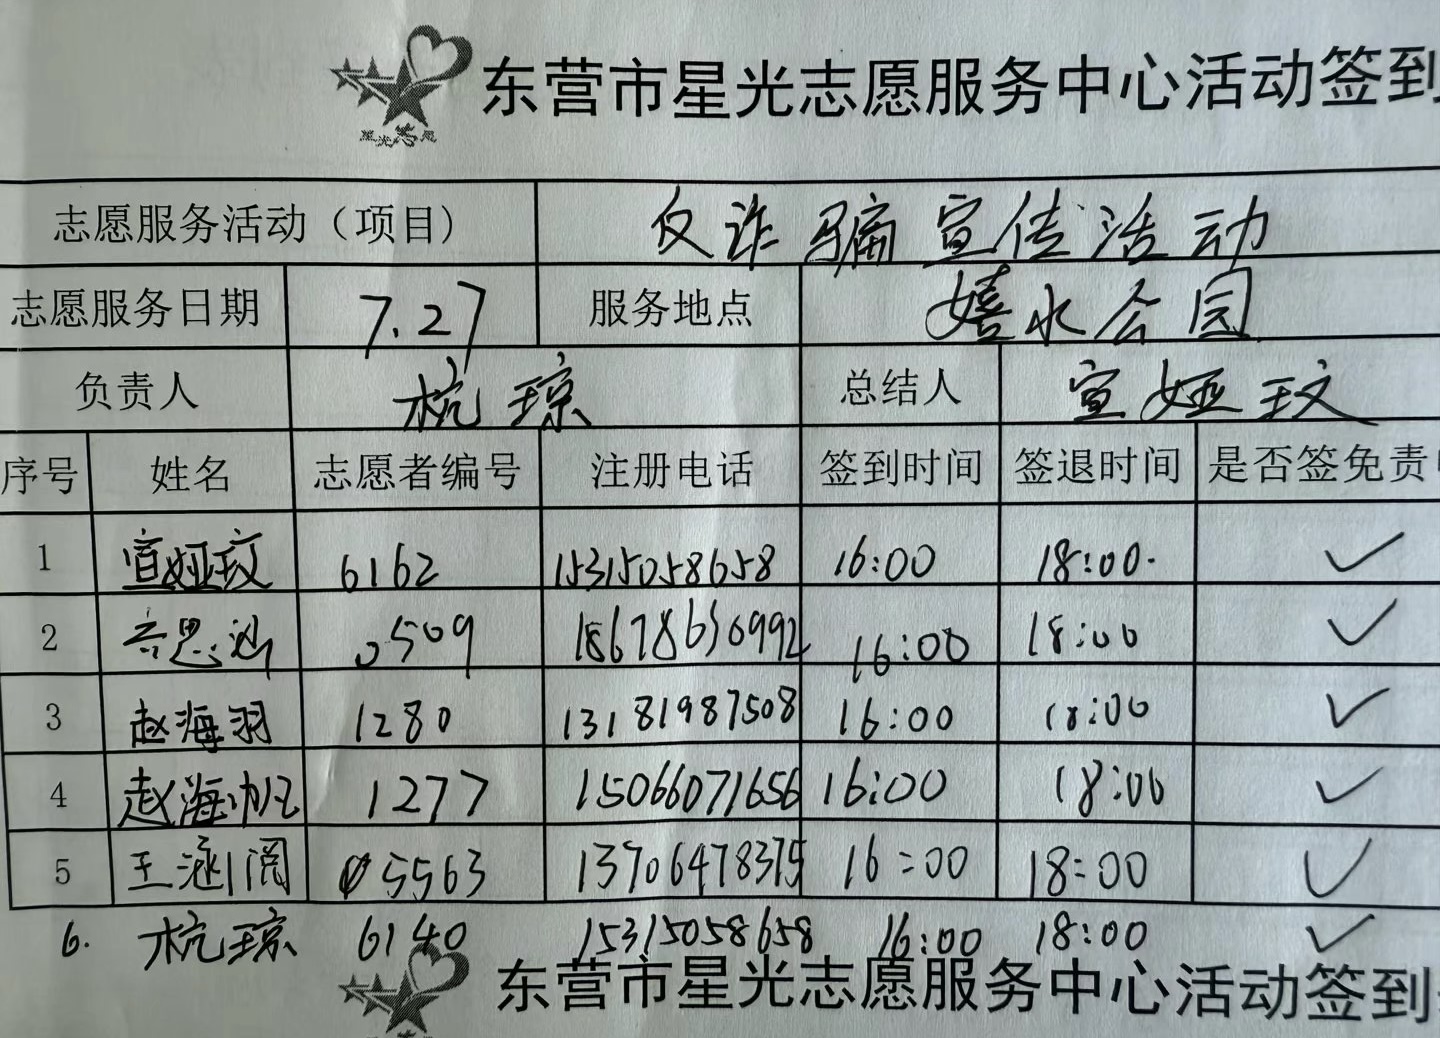 东营市星光志愿服务中心活动签到
星光志愿
志愿服务活动（项目） 反诈骗宣传活动
志愿服务日期 7.27 服务地点 嬉水公园
负责人 杭琼 总结人 宣娅玟
序号 姓名 志愿者编号 注册电话 签到时间 签退时间 是否签免责
1 宣娅玟 6162 15315058658 16:00 18:00.
2 思 0509 18678650992 16:00 18:00
3 赵海羽 1280 13181987508 16:00 18:00
4 赵海帆 1277 15066071656 16:00 18:00
5 王涵阅 05563 13706478375 16:00 18:00
6. 杭琼 6140 15315058658 16:00 18:00
东营市星光志愿服务中心活动签到